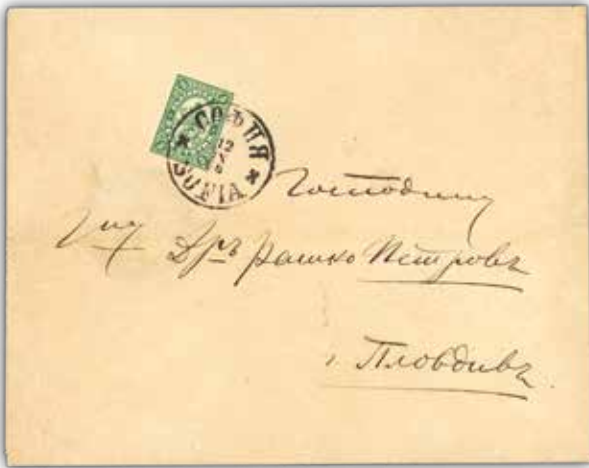 СОФИЯ
12
SOFIA
Господину
Г-ну Д-ръ Рашко Петровъ
г. Пловдивъ